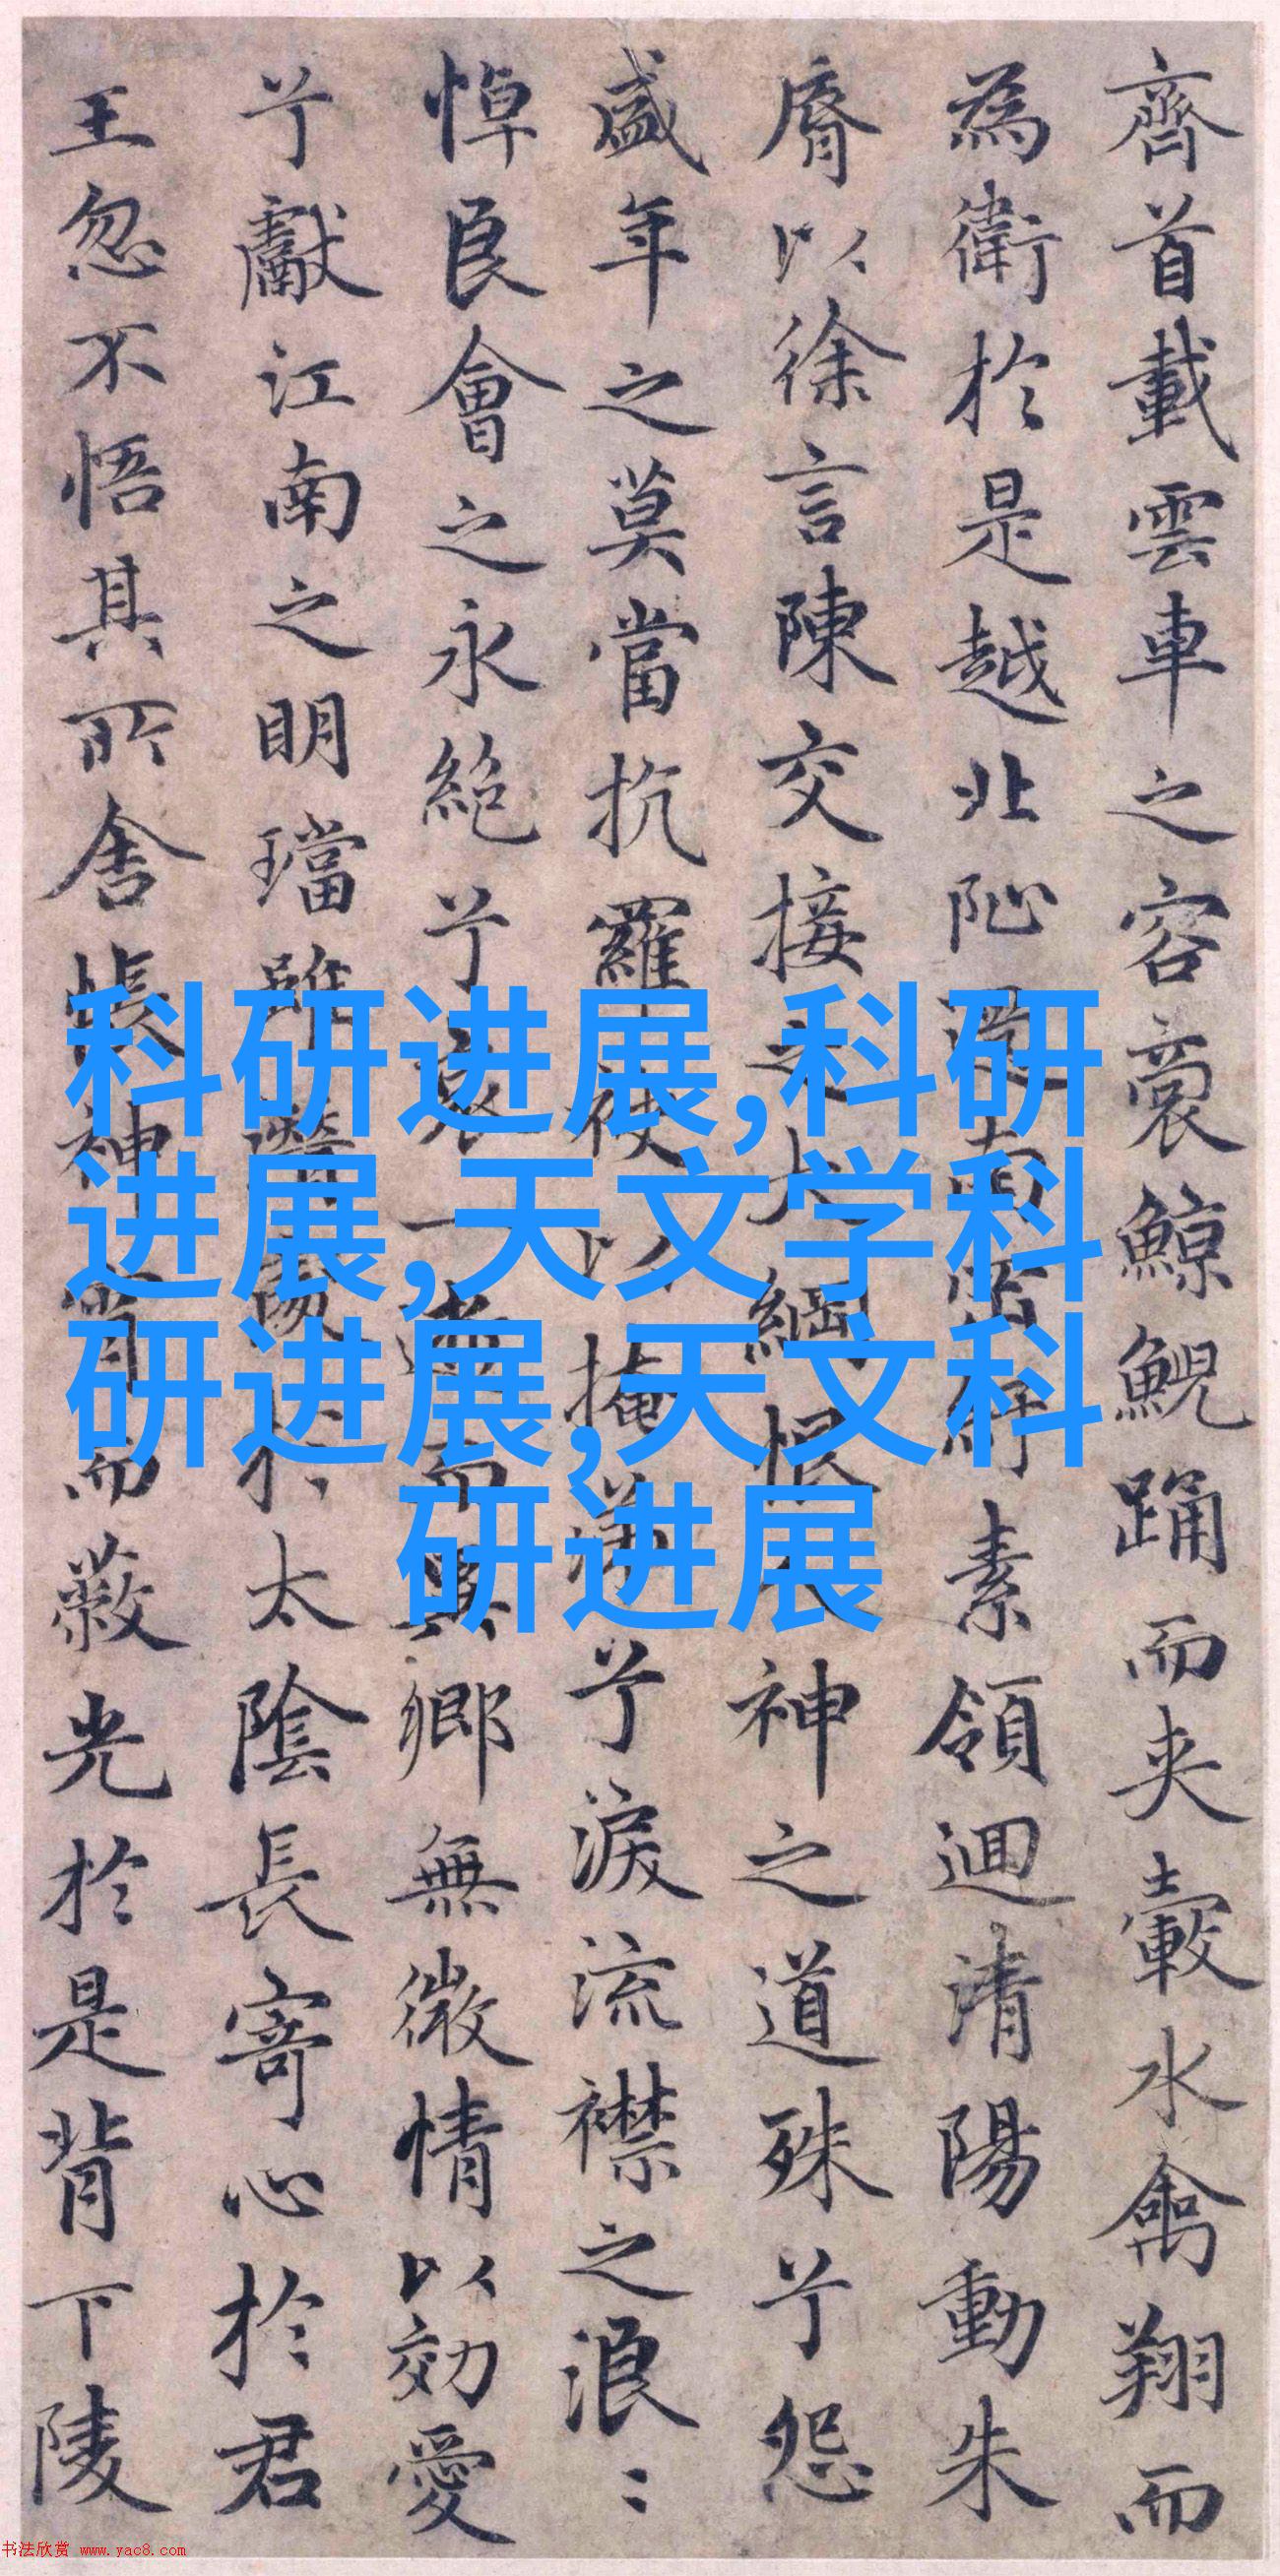 齊首載雲車之容裔鯨鯢踊而夾轂水禽翔而
為衛於是越北沚過南岡紆素領迴清陽動朱
脣以徐言陳交接之大綱恨人神之道殊兮怨
盛年之莫當抗羅袂以掩涕兮淚流襟之浪〻
悼良會之永絕兮哀一逝而異鄉無微情以効愛
兮獻江南之明璫雖潛處於太陰長寄心於君
王忽不悟其所舍悵神宵而蔽光於是背下陵
科研进展,科研
进展,天文学科
研进展,天文科
研进展
书法欣赏 www.yac8.com